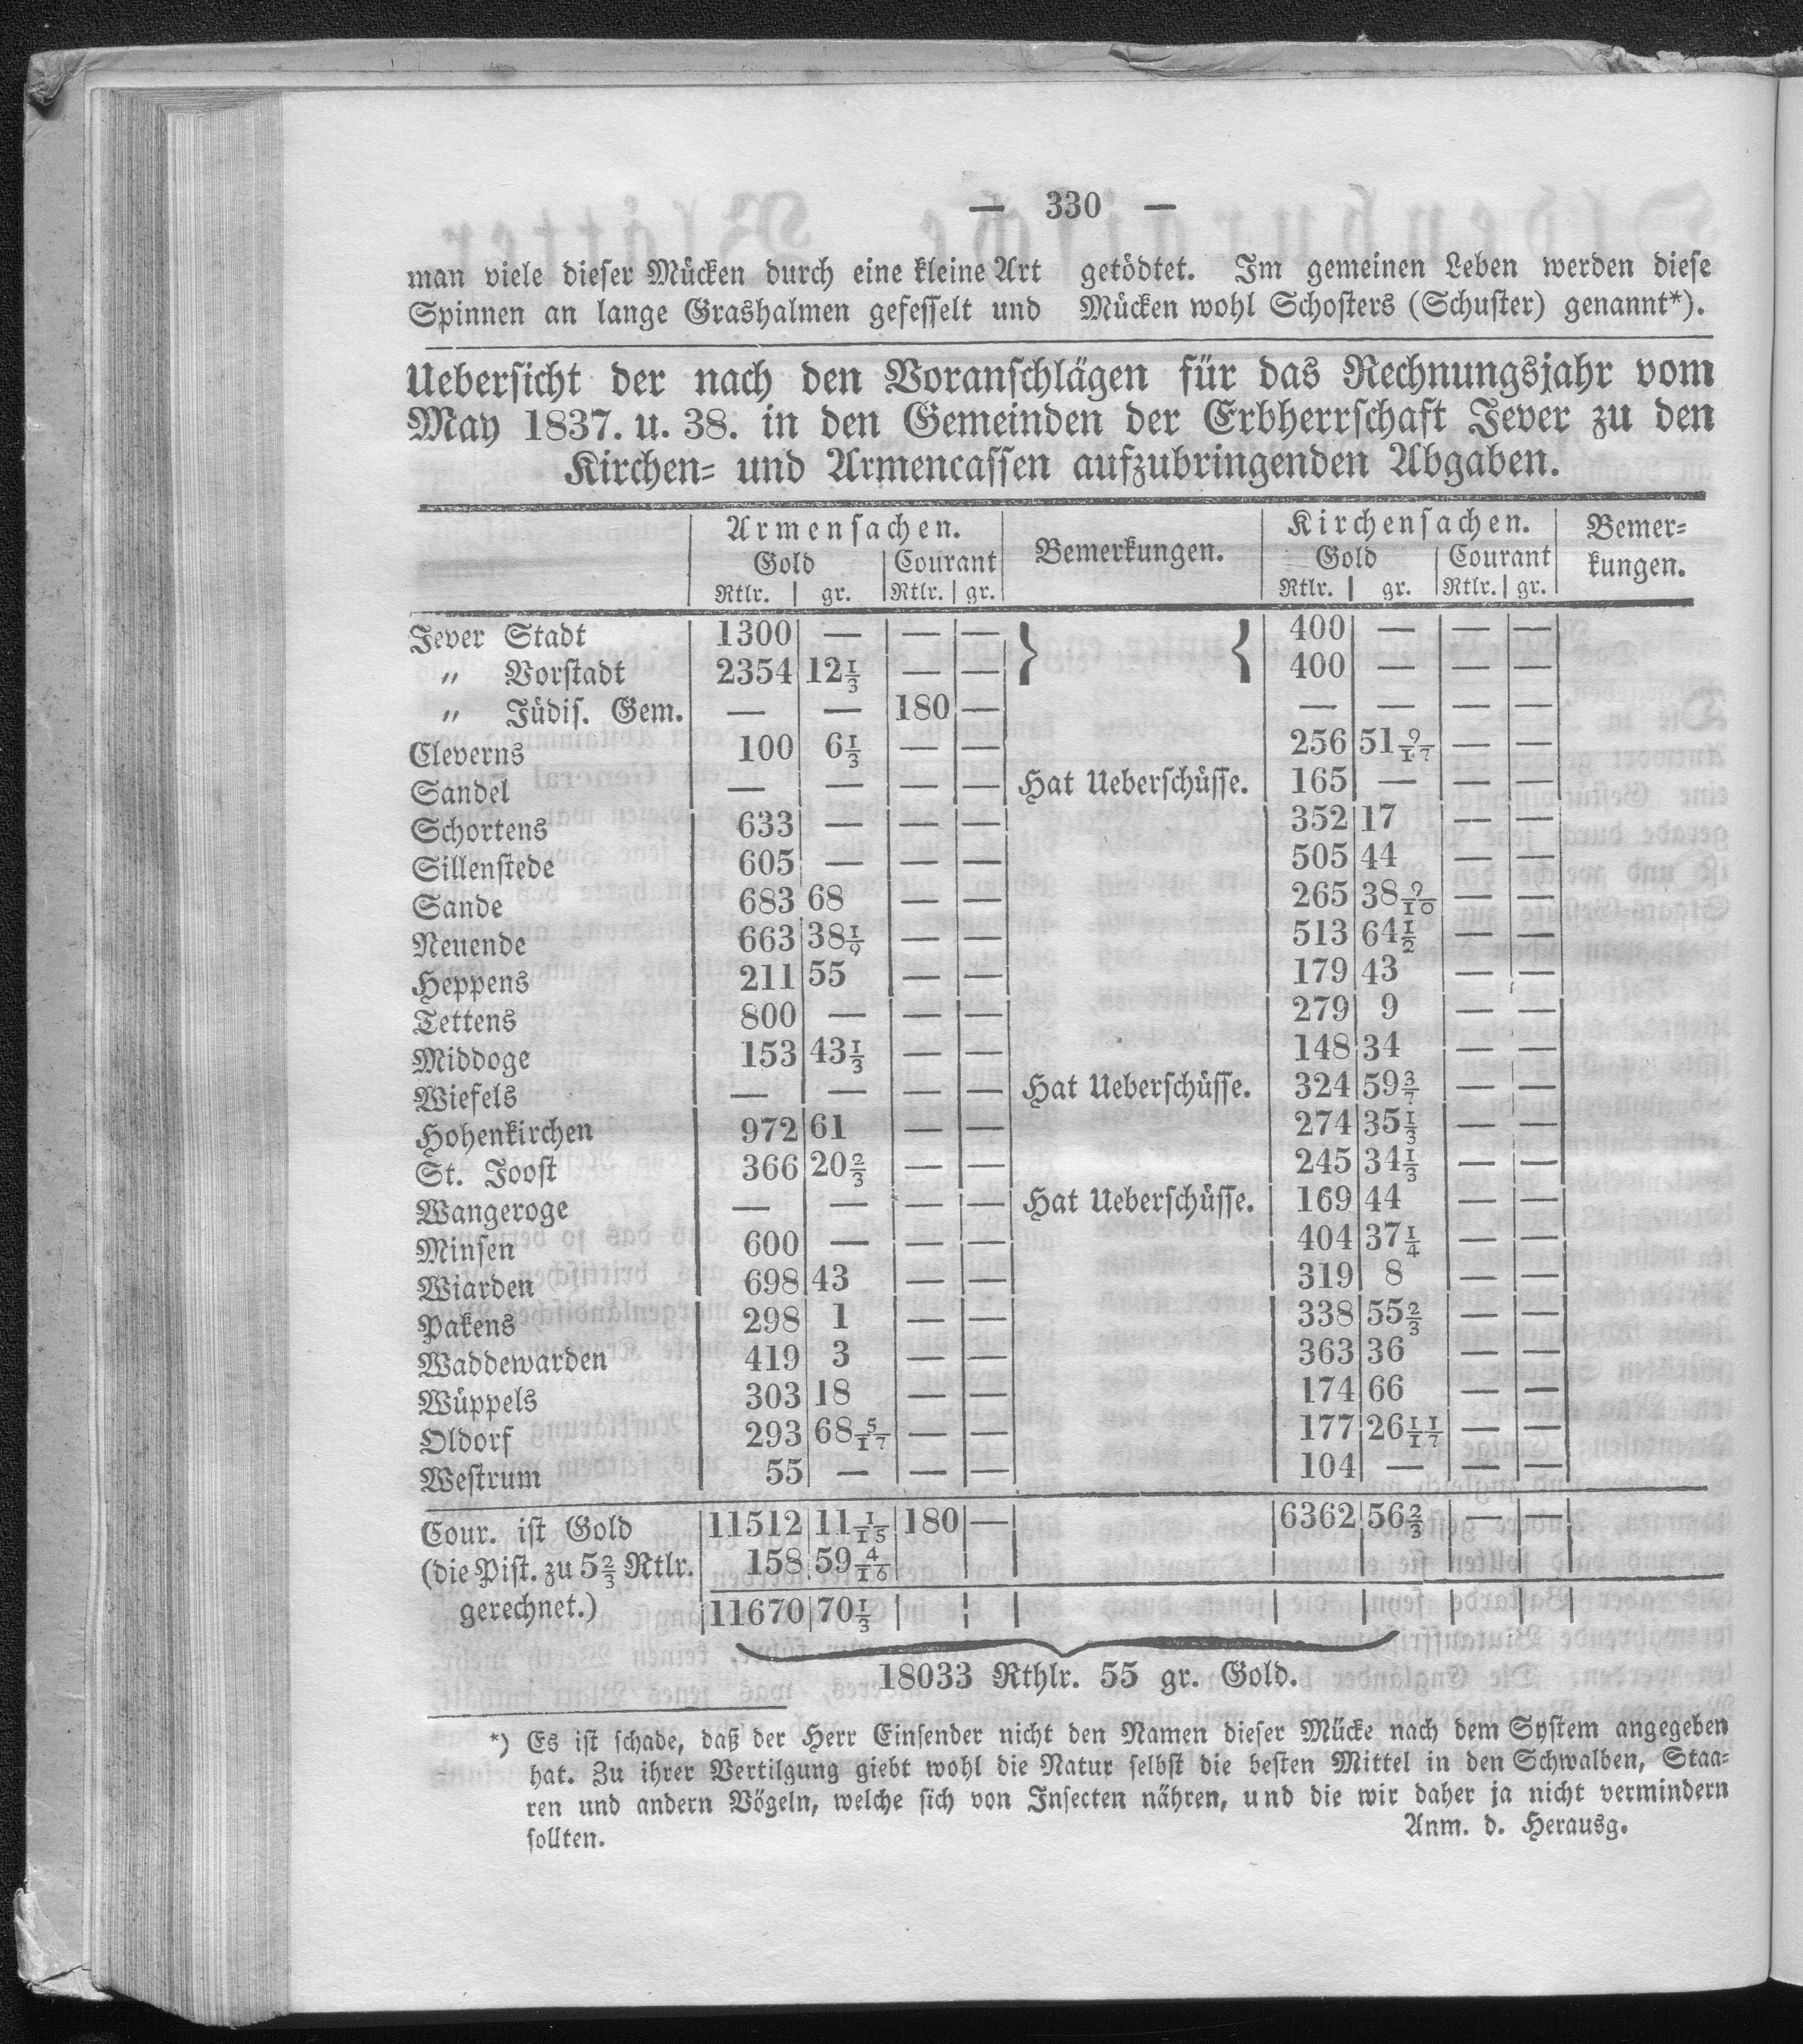 — 330 —
man viele dieser Mücken durch eine kleine Art
Spinnen an lange Grashalmen gefesselt und
getödtet. Im gemeinen Leben werden diese
Mücken wohl Schosters (Schuster) genannt*).
Uebersicht der nach den Voranschlägen für das Rechnungsjahr vom
May 1837. u. 38. in den Gemeinden der Erbherrschaft Jever zu den
Kirchen= und Armencassen aufzubringenden Abgaben.
Armensachen. | Bemerkungen. | Kirchensachen. | Bemer=
Gold | Courant | Gold | Courant | kungen.
Rtlr. | gr. | Rtlr. | gr. | Rtlr. | gr. | Rtlr. | gr.
Jever Stadt | 1300 | — | — | — | } { | 400 | — | — | —
„ Vorstadt | 2354 | 12 1/3 | — | — | 400 | — | — | —
„ Jüdis. Gem. | — | — | 180 | — | — | — | — | —
Cleverns | 100 | 6 1/3 | — | — | 256 | 51 9/17 | — | —
Sandel | — | — | — | — | Hat Ueberschüsse. | 165 | — | — | —
Schortens | 633 | — | — | — | 352 | 17 | — | —
Sillenstede | 605 | — | — | — | 505 | 44 | — | —
Sande | 683 | 68 | — | — | 265 | 38 9/10 | — | —
Neuende | 663 | 38 1/9 | — | — | 513 | 64 1/2 | — | —
Heppens | 211 | 55 | — | — | 179 | 43 | — | —
Tettens | 800 | — | — | — | 279 | 9 | — | —
Middoge | 153 | 43 1/3 | — | — | 148 | 34 | — | —
Wiefels | — | — | — | — | Hat Ueberschüsse. | 324 | 59 3/7 | — | —
Hohenkirchen | 972 | 61 | — | — | 274 | 35 1/3 | — | —
St. Joost | 366 | 20 2/3 | — | — | 245 | 34 1/3 | — | —
Wangeroge | — | — | — | — | Hat Ueberschüsse. | 169 | 44 | — | —
Minsen | 600 | — | — | — | 404 | 37 1/4 | — | —
Wiarden | 698 | 43 | — | — | 319 | 8 | — | —
Pakens | 298 | 1 | — | — | 338 | 55 2/3 | — | —
Waddewarden | 419 | 3 | — | — | 363 | 36 | — | —
Wüppels | 303 | 18 | — | — | 174 | 66 | — | —
Oldorf | 293 | 68 5/17 | — | — | 177 | 26 11/17 | — | —
Westrum | 55 | — | — | — | 104 | — | — | —
Cour. ist Gold | 11512 | 11 1/15 | 180 | — | 6362 | 56 2/3 | — | —
(die Pist. zu 5 2/3 Rtlr. | 158 | 59 4/16
gerechnet.) | 11670 | 70 1/3
18033 Rthlr. 55 gr. Gold.
*) Es ist schade, daß der Herr Einsender nicht den Namen dieser Mücke nach dem System angegeben
hat. Zu ihrer Vertilgung giebt wohl die Natur selbst die besten Mittel in den Schwalben, Staa=
ren und andern Vögeln, welche sich von Insecten nähren, und die wir daher ja nicht vermindern
sollten. Anm. d. Herausg.